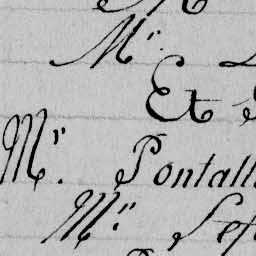 Mr.
Et
Mr. Pontall
Mr. Lef